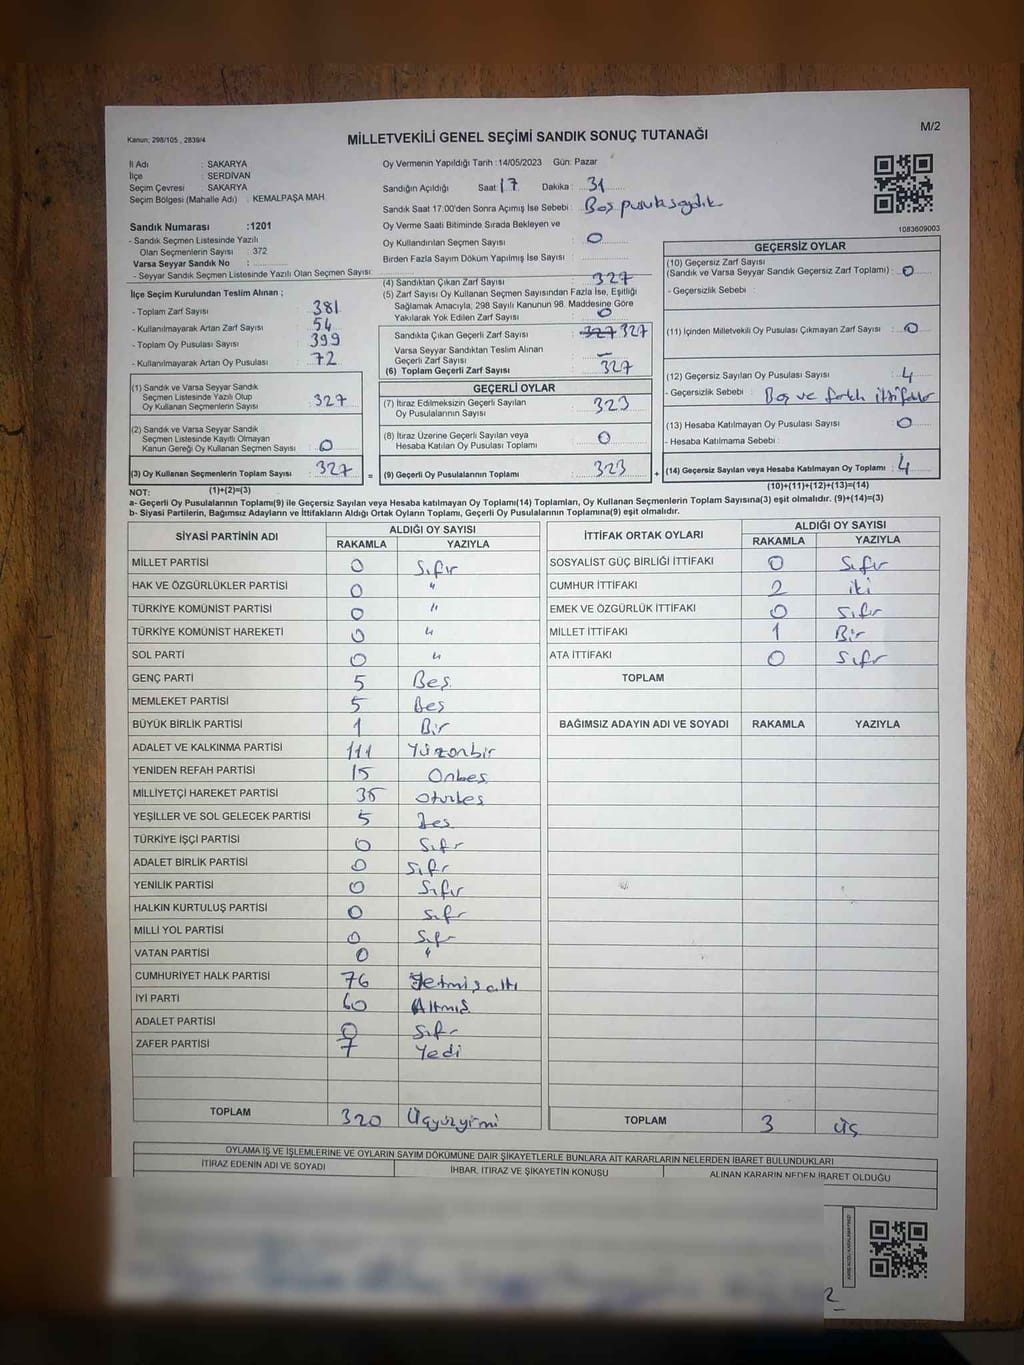 Kanun: 298/105 , 2839/4
M/2
MİLLETVEKİLİ GENEL SEÇİMİ SANDIK SONUÇ TUTANAĞI
İl Adı : SAKARYA
İlçe : SERDİVAN
Seçim Çevresi : SAKARYA
Seçim Bölgesi (Mahalle Adı) : KEMALPAŞA MAH.
Sandık Numarası :1201
- Sandık Seçmen Listesinde Yazılı
Olan Seçmenlerin Sayısı : 372
Varsa Seyyar Sandık No :
- Seyyar Sandık Seçmen Listesinde Yazılı Olan Seçmen Sayısı:
Oy Vermenin Yapıldığı Tarih :14/05/2023 Gün: Pazar
Sandığın Açıldığı Saat 17 Dakika : 31
Sandık Saat 17.00'den Sonra Açımış İse Sebebi : Boş pusula saydık
Oy Verme Saati Bitiminde Sırada Bekleyen ve
Oy Kullandırılan Seçmen Sayısı : 0
Birden Fazla Sayım Döküm Yapılmış İse Sayısı :
1083609003
İlçe Seçim Kurulundan Teslim Alınan ;
- Toplam Zarf Sayısı : 381
- Kullanılmayarak Artan Zarf Sayısı : 54
- Toplam Oy Pusulası Sayısı : 399
- Kullanılmayarak Artan Oy Pusulası : 72
(1) Sandık ve Varsa Seyyar Sandık
Seçmen Listesinde Yazılı Olup
Oy Kullanan Seçmenlerin Sayısı : 327
(2) Sandık ve Varsa Seyyar Sandık
Seçmen Listesinde Kayıtlı Olmayan
Kanun Gereği Oy Kullanan Seçmen Sayısı : 0
(3) Oy Kullanan Seçmenlerin Toplam Sayısı : 327
(4) Sandıktan Çıkan Zarf Sayısı : 327
(5) Zarf Sayısı Oy Kullanan Seçmen Sayısından Fazla İse, Eşitliği
Sağlamak Amacıyla; 298 Sayılı Kanunun 98. Maddesine Göre
Yakılarak Yok Edilen Zarf Sayısı : 0
Sandıkta Çıkan Geçerli Zarf Sayısı : 327 327
Varsa Seyyar Sandıktan Teslim Alınan
Geçerli Zarf Sayısı : –
(6) Toplam Geçerli Zarf Sayısı : 327
GEÇERLİ OYLAR
(7) İtiraz Edilmeksizin Geçerli Sayılan
Oy Pusulalarının Sayısı : 323
(8) İtiraz Üzerine Geçerli Sayılan veya
Hesaba Katılan Oy Pusulaları Toplamı : 0
= (9) Geçerli Oy Pusulalarının Toplamı : 323
GEÇERSİZ OYLAR
(10) Geçersiz Zarf Sayısı
(Sandık ve Varsa Seyyar Sandık Geçersiz Zarf Toplamı) : 0
- Geçersizlik Sebebi :
(11) İçinden Milletvekili Oy Pusulası Çıkmayan Zarf Sayısı : 0
(12) Geçersiz Sayılan Oy Pusulası Sayısı : 4
- Geçersizlik Sebebi : Boş ve farklı ittifaklar
(13) Hesaba Katılmayan Oy Pusulası Sayısı : 0
- Hesaba Katılmama Sebebi :
+ (14) Geçersiz Sayılan veya Hesaba Katılmayan Oy Toplamı : 4
NOT: (1)+(2)=(3)
(10)+(11)+(12)+(13)=(14)
a- Geçerli Oy Pusulalarının Toplamı(9) ile Geçersiz Sayılan veya Hesaba katılmayan Oy Toplamı(14) Toplamları, Oy Kullanan Seçmenlerin Toplam Sayısına(3) eşit olmalıdır. (9)+(14)=(3)
b- Siyasi Partilerin, Bağımsız Adayların ve İttifakların Aldığı Ortak Oyların Toplamı, Geçerli Oy Pusulalarının Toplamına(9) eşit olmalıdır.
SİYASİ PARTİNİN ADI ALDIĞI OY SAYISI
RAKAMLA YAZIYLA
MİLLET PARTİSİ 0 Sıfır
HAK VE ÖZGÜRLÜKLER PARTİSİ 0 "
TÜRKİYE KOMÜNİST PARTİSİ 0 "
TÜRKİYE KOMÜNİST HAREKETİ 0 "
SOL PARTİ 0 "
GENÇ PARTİ 5 Beş
MEMLEKET PARTİSİ 5 Beş
BÜYÜK BİRLİK PARTİSİ 1 Bir
ADALET VE KALKINMA PARTİSİ 111 Yüzonbir
YENİDEN REFAH PARTİSİ 15 Onbeş
MİLLİYETÇİ HAREKET PARTİSİ 35 Otuzbeş
YEŞİLLER VE SOL GELECEK PARTİSİ 5 Beş
TÜRKİYE İŞÇİ PARTİSİ 0 Sıfır
ADALET BİRLİK PARTİSİ 0 Sıfır
YENİLİK PARTİSİ 0 Sıfır
HALKIN KURTULUŞ PARTİSİ 0 Sıfır
MİLLİ YOL PARTİSİ 0 Sıfır
VATAN PARTİSİ 0 "
CUMHURİYET HALK PARTİSİ 76 Yetmişaltı
İYİ PARTİ 60 Altmış
ADALET PARTİSİ 0 Sıfır
ZAFER PARTİSİ 7 Yedi
TOPLAM 320 Üçyüzyirmi
İTTİFAK ORTAK OYLARI ALDIĞI OY SAYISI
RAKAMLA YAZIYLA
SOSYALİST GÜÇ BİRLİĞİ İTTİFAKI 0 Sıfır
CUMHUR İTTİFAKI 2 iki
EMEK VE ÖZGÜRLÜK İTTİFAKI 0 Sıfır
MİLLET İTTİFAKI 1 Bir
ATA İTTİFAKI 0 Sıfır
TOPLAM
BAĞIMSIZ ADAYIN ADI VE SOYADI RAKAMLA YAZIYLA
TOPLAM 3 üç
OYLAMA İŞ VE İŞLEMLERİNE VE OYLARIN SAYIM DÖKÜMÜNE DAİR ŞİKAYETLERLE BUNLARA AİT KARARLARIN NELERDEN İBARET BULUNDUKLARI
İTİRAZ EDENİN ADI VE SOYADI İHBAR, İTİRAZ VE ŞİKAYETİN KONUSU ALINAN KARARIN NEDEN İBARET OLDUĞU